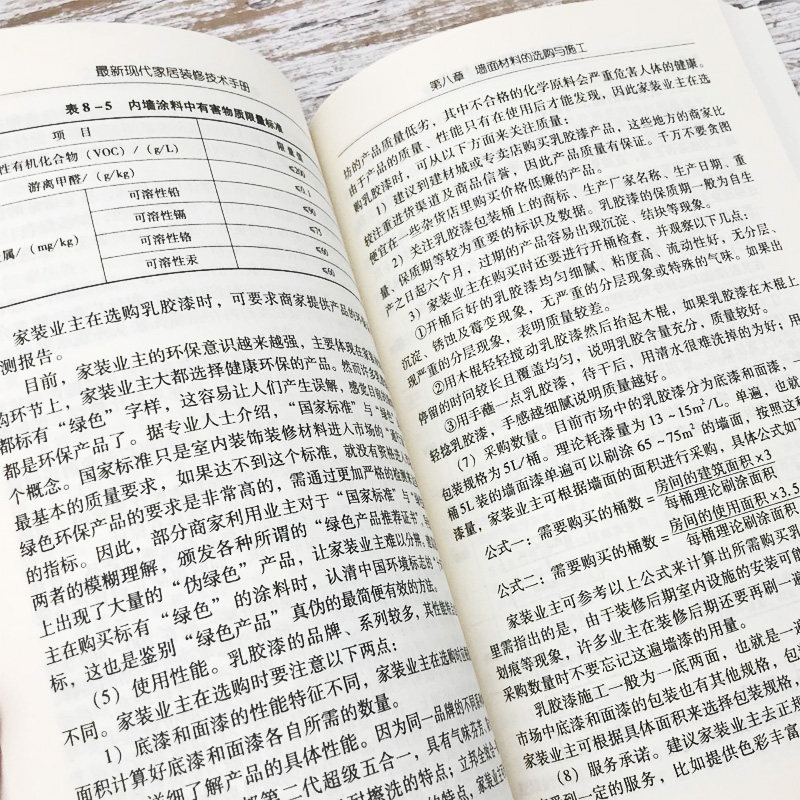 最新现代家居装修技术手册
表8-5 内墙涂料中有害物质限量标准
项 目 限 量 值
性有机化合物(VOC)/(g/L) ≤200
游离甲醛/(g/kg) ≤0.1
属/(mg/kg) 可溶性铅 ≤90
可溶性镉 ≤75
可溶性铬 ≤60
可溶性汞 ≤60
家装业主在选购乳胶漆时,可要求商家提供产品的
测报告。
目前,家装业主的环保意识越来越强,主要体现在
购环节上,家装业主大都选择健康环保的产品。然而许多
都标有“绿色”字样,这容易让人们产生误解,感觉
都是环保产品了。据专业人士介绍,“国家标准”与“绿
个概念。国家标准只是室内装饰装修材料进入市场的“
最基本的质量要求,如果达不到这个标准,就没有资格
绿色环保产品的要求是非常高的,需通过更加严格的检测
的指标。因此,部分商家利用业主对于“国家标准”与
两者的模糊理解,颁发各种所谓的“绿色产品推荐证书”,
上出现了大量的“伪绿色”产品,让家装业主难以分辨。
主在购买标有“绿色”的涂料时,认清中国环境标志的“
标,这也是鉴别“绿色产品”真伪的最简便有效的方法。
(5) 使用性能。乳胶漆的品牌、系列较多,其性能
不同。家装业主在选购时要注意以下两点:
1) 底漆和面漆的性能特征不同,家装业主在选购时
面积计算好底漆和面漆各自所需的数量。
详细了解产品的具体性能。因为同一品牌的不同
第二代超级五合一,具有气味芬芳、
耐擦洗的特点;立邦全
第八章 墙面材料的选购与施工
坊的产品质量低劣,其中不合格的化学原料会严重危害人体的健康。
由于产品的质量、性能只有在使用后才能发现,因此家装业主在选
购乳胶漆时,可从以下方面来关注质量:
1) 建议到建材城或专卖店购买乳胶漆产品,这些地方的商家比
较注重进货渠道及商品信誉,因此产品质量有保证。千万不要贪图
便宜在一些杂货店里购买价格低廉的产品。
2) 关注乳胶漆包装桶上的商标、生产厂家名称、生产日期、重
量、保质期等较为重要的标识及数据。乳胶漆的保质期一般为自生
产之日起六个月,过期的产品容易出现沉淀、结块等现象。
3) 家装业主在购买时还要进行开桶检查,并观察以下几点:
①开桶后好的乳胶漆均匀细腻、粘度高、流动性好,无分层、
沉淀、锈蚀及霉变现象,无严重的分层现象或特殊的气味。如果出
现严重的分层现象,表明质量较差。
②用木棍轻轻搅动乳胶漆然后抬起木棍,如果乳胶漆在木棍上
停留的时间较长且覆盖均匀,说明乳胶含量充分,质量较好。
③用手蘸一点乳胶漆,待干后,用清水很难洗掉的为好;用
轻捻乳胶漆,手感越细腻说明质量越好。
(7) 采购数量。目前市场中的乳胶漆分为底漆和面漆,一
包装规格为5L/桶。理论耗漆量为13~15m²/L。单遍,也就
桶5L装的墙面漆单遍可以刷涂65~75m²的墙面,按照这种
漆量,家装业主可根据墙面的面积进行采购,具体公式如
公式一:需要购买的桶数=房间的建筑面积×3/每桶理论刷涂面积
公式二:需要购买的桶数=房间的使用面积×3.5/每桶理论刷涂面积
家装业主可参考以上公式来计算出所需购买乳
里需指出的是,由于装修后期室内设施的安装可能
划痕等现象,许多业主在装修后期还要再刷一遍
采购数量时不要忘记这遍墙漆的用量。
乳胶漆施工一般为一底两面,也就是一遍
市场中底漆和面漆的包装也有其他规格,包
家装业主可根据具体面积来选择包装规格,
(8) 服务承诺。建议家装业主去正规
受到一定的服务,比如提供色彩丰富